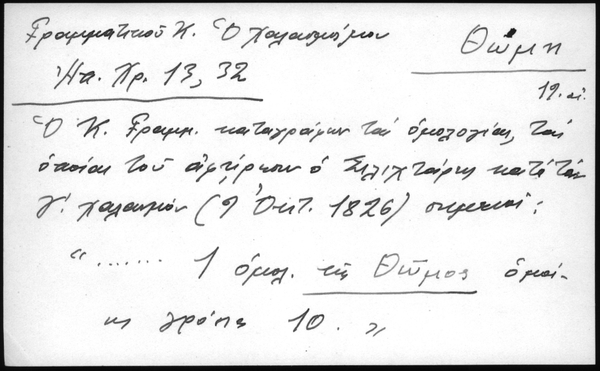 Γραμματικοῦ Κ. Ὁ χαλασμός μου
Θώμη
Ἠπ. Χρ. 13, 32
19. αἰ.
Ὁ Κ. Γραμμ. καταγράφων τὰς ὁμολογίας, τὰς
ὁποίας τοῦ ἀφῄρεσεν ὁ Σιλιχτάρης κατὰ τὸν
γ'. χαλασμὸν (9 Ὀκτ. 1826) σημειοῖ:
“ ....... 1 ὁμολ. τῆς Θώμος ὁμοί-
ως γρόσια 10. „